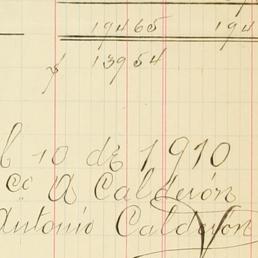 19465 194
$ 13954
10 de 1910
Co A Calderón
Antonio Calderon